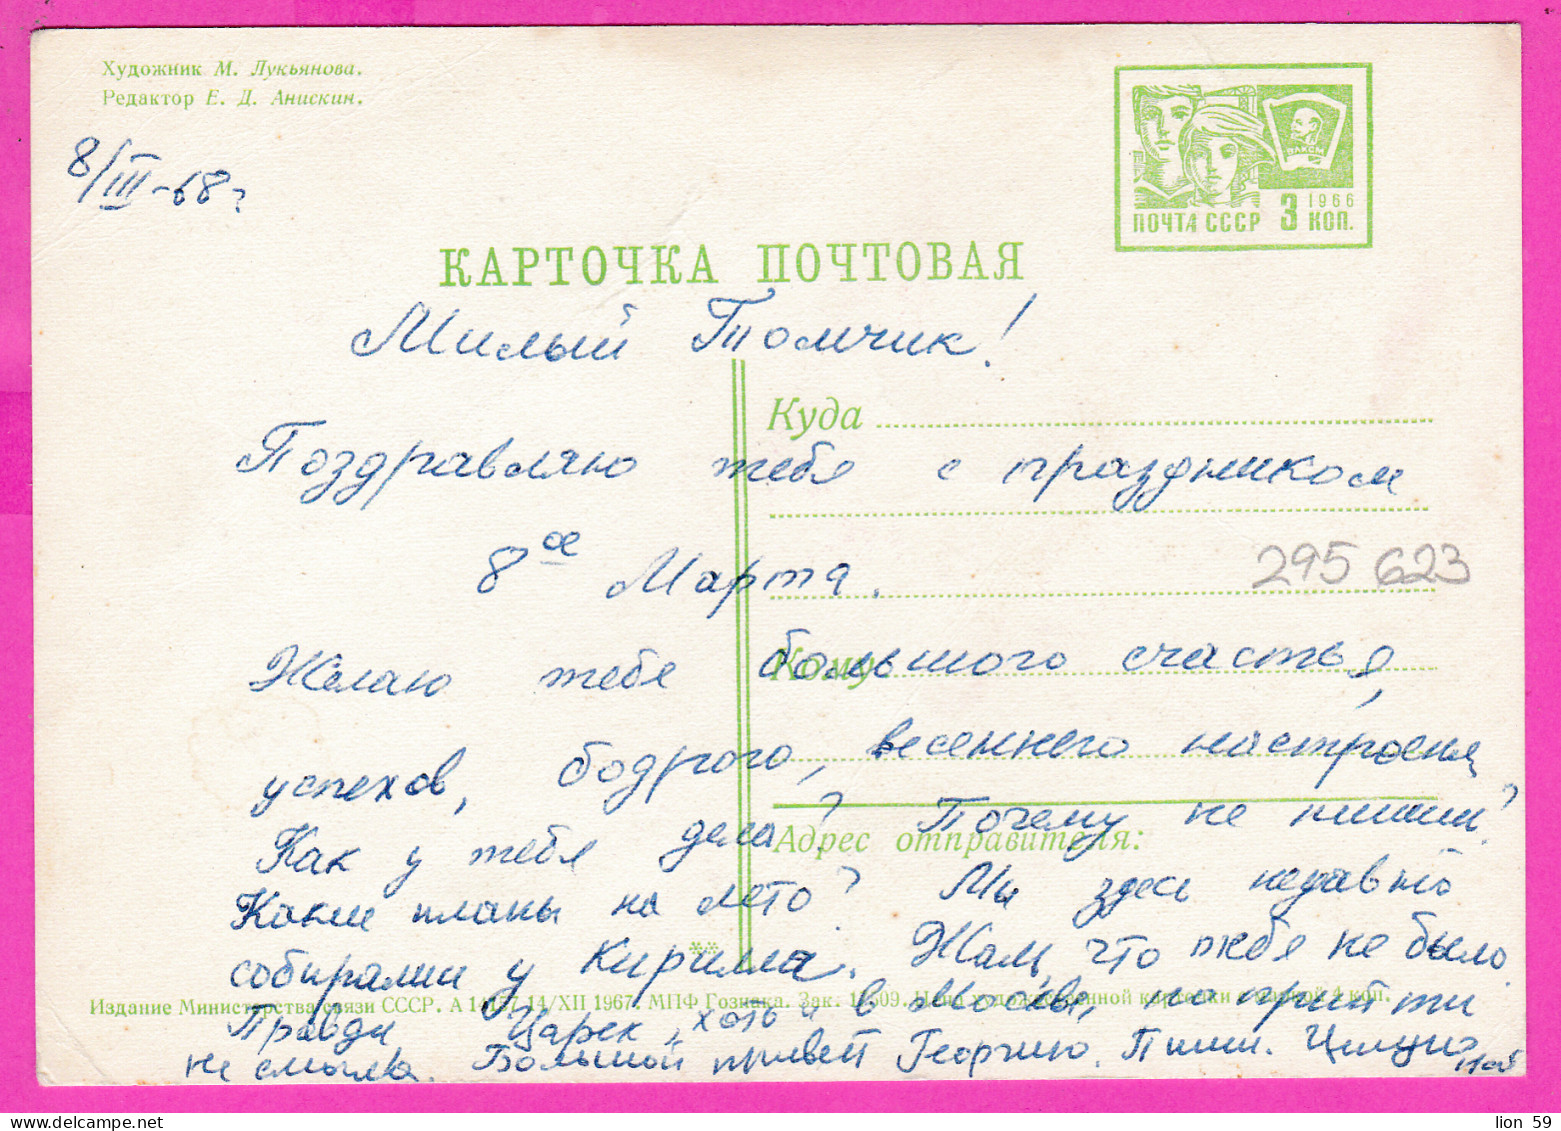 Художник М. Лукьянова.
Редактор Е. Д. Анискин.
8/III-68г
ВЛКСМ
1966
ПОЧТА СССР 3 КОП.
КАРТОЧКА ПОЧТОВАЯ
Милый Томчик!
Куда
Поздравляю тебя с праздником
8ое Марта.
295 623
Кому
Желаю тебе большого счастья,
успехов, бодрого, весеннего настроения
Как у тебя дела? Почему не пишешь?
Адрес отправителя:
Какие планы на лето? Мы здесь недавно
собирались у Кирилла. Жаль, что тебя не было.
Издание Министерства связи СССР. А 14157 14/XII 1967. МПФ Гознака. Зак. 1609. Цена художественной карточки с маркой 4 коп.
Правда Царек, хоть и в Москве, но прийти
не смогла. Большой привет Георгию. Пиши. Целую
lion 59